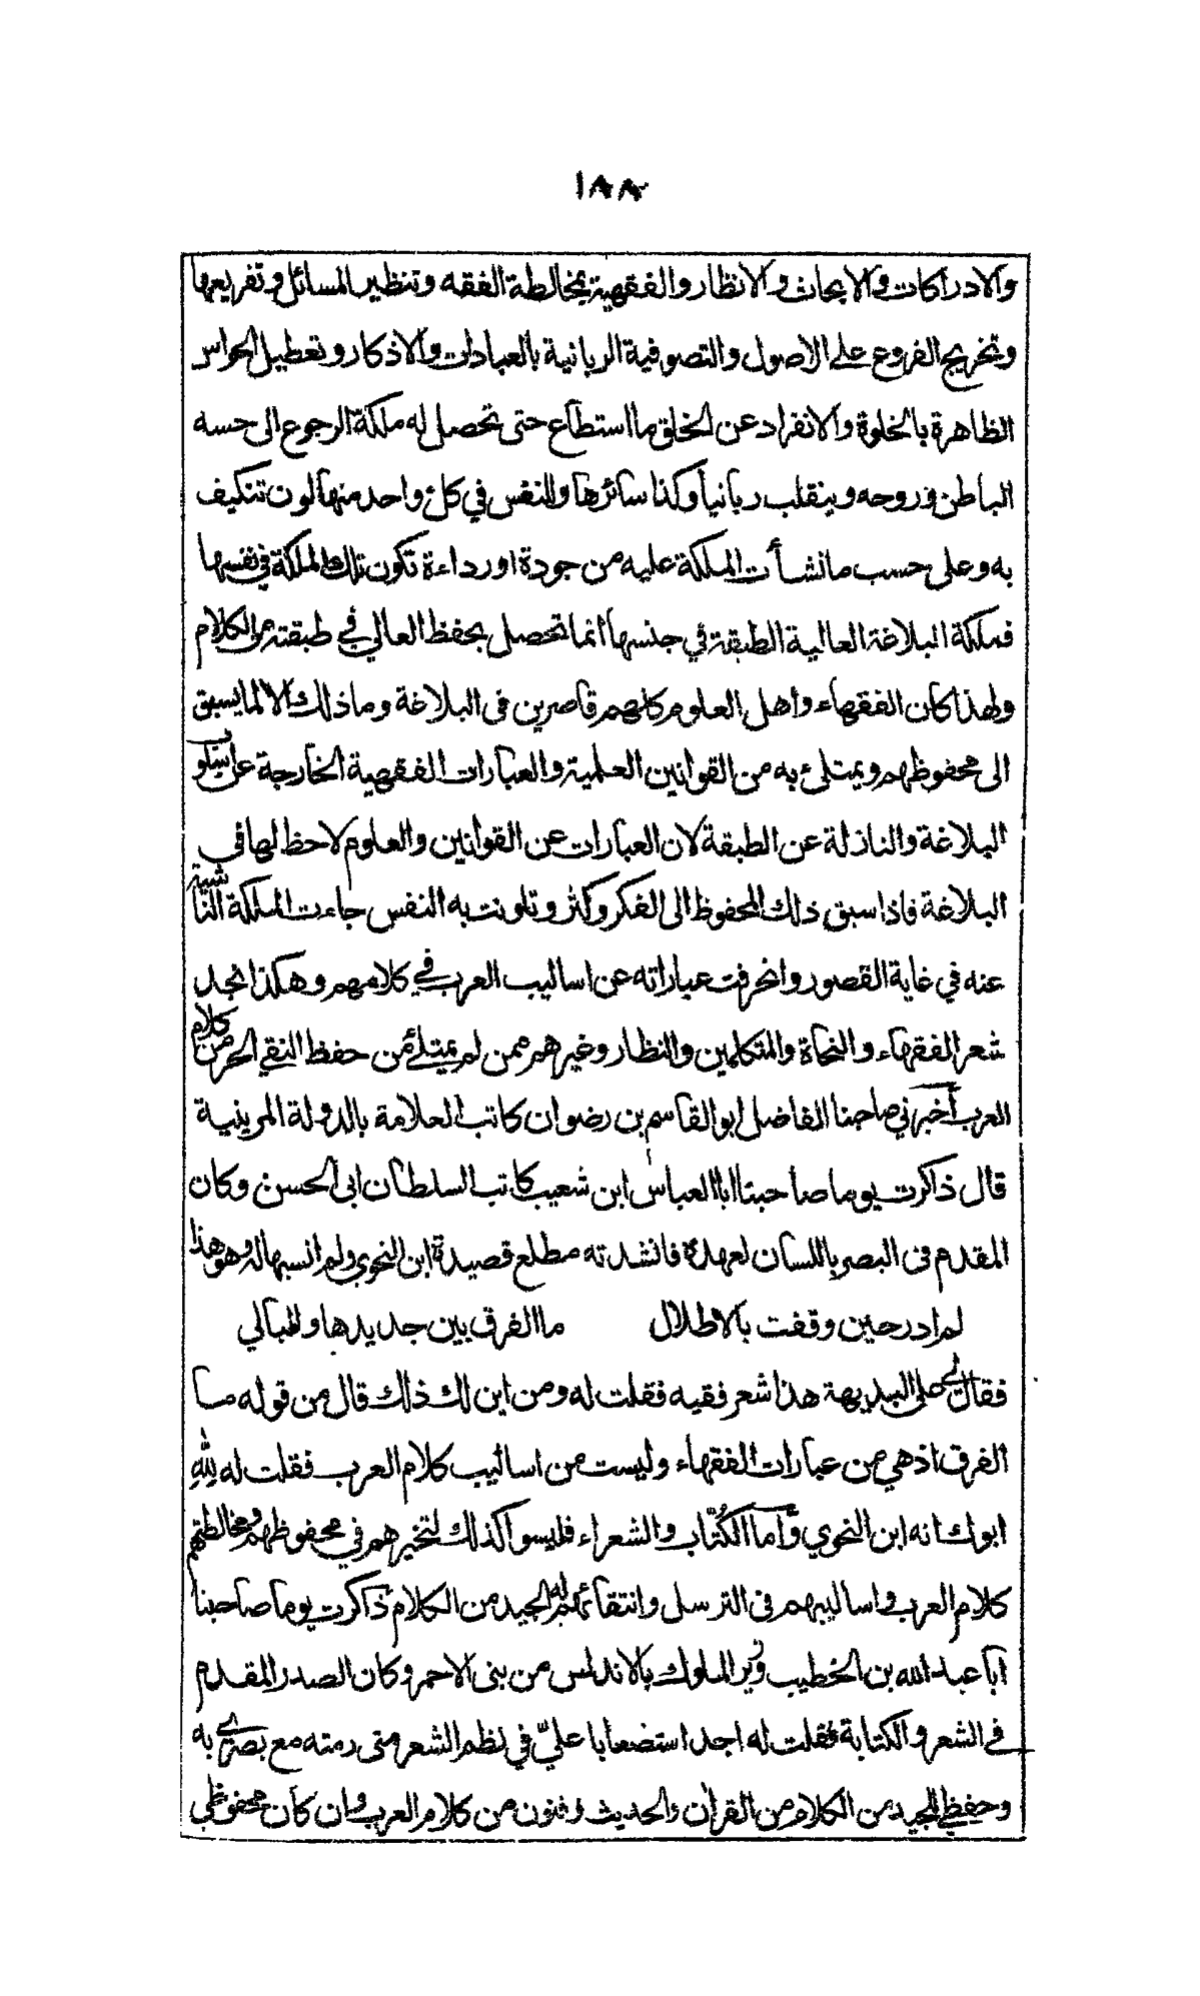 ١٨٨
والادراكات والابحاث والانظار والفقهية بمخالطة الفقه وتنظير المسائل وتفريعها
وتخريج الفروع على الاصول والتصوفية الربانية بالعبادات والاذكار وتعطيل الحواس
الظاهرة بالخلوة والانفراد عن الخلق ما استطاع حتى تحصل له ملكة الرجوع الى حسه
الباطن وروحه وينقلب ربانيا وكذا سائرها والنفس في كل واحد منها لون تتكيف
به وعلى حسب ما نشأت الملكة عليه من جودة او رداءة تكون تلك الملكة في نفسها
فملكة البلاغة العالية الطبقة في جنسها انما تحصل بحفظ العالي في طبقته من الكلام
ولهذا كان الفقهاء واهل العلوم كلهم قاصرين في البلاغة وما ذلك الا لما يسبق
الى محفوظهم ويمتلئ به من القوانين العلمية والعبارات الفقهية الخارجة عن اسلوب
البلاغة والنازلة عن الطبقة لان العبارات عن القوانين والعلوم لاحظ لها في
البلاغة فاذا سبق ذلك المحفوظ الى الفكر وكثر وتلونت به النفس جاءت الملكة الناشية
عنه في غاية القصور وانحرفت عباراته عن اساليب العرب في كلامهم وهكذا نجد
شعر الفقهاء والنحاة والمتكلمين والنظار وغيرهم ممن لم يمتلئ من حفظ النقي الحر من كلام
العرب أخبرني صاحبنا الفاضل ابو القاسم بن رضوان كاتب العلامة بالدولة المرينية
قال ذاكرت يوما صاحبنا ابا العباس ابن شعيب كاتب السلطان ابى الحسن وكان
المقدم في البصر باللسان لعهده فانشدته مطلع قصيدة ابن النحوي ولم انسبها له وهو هذا
لم ادر حين وقفت بالاطلال ما الفرق بين جديدها والبالي
فقال لي على البديهة هذا شعر فقيه فقلت له ومن اين لك ذلك قال من قوله ما
الفرق اذ هي من عبارات الفقهاء وليست من اساليب كلام العرب فقلت له لله
ابوك انه ابن النحوي وأما الكُتّاب والشعراء فليسوا كذلك لتخيرهم في محفوظهم ومخالطتهم
كلام العرب واساليبهم في الترسل وانتقائهم له الجيد من الكلام ذاكرت يوما صاحبنا
أبا عبد الله بن الخطيب وزير الملوك بالاندلس من بنى الاحمر وكان الصدر المقدم
في الشعر والكتابة فقلت له اجد استصعابا عليّ في نظم الشعر متى رمته مع بصري به
وحفظي للجيد من الكلام من القرآن والحديث وفنون من كلام العرب وان كان محفوظي